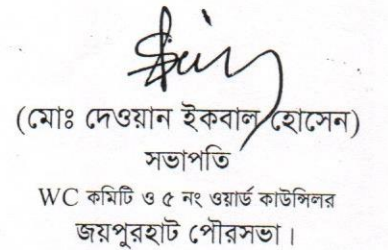 (মোঃ দেওয়ান ইকবাল হোসেন)
সভাপতি
WC কমিটি ও ৫ নং ওয়ার্ড কাউন্সিলর
জয়পুরহাট পৌরসভা।